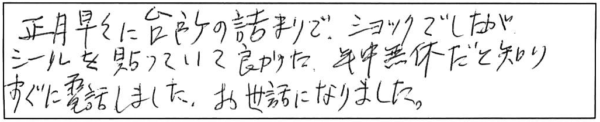 正月早々に台所の詰まりで、ショックでしたが
シールを貼っていて良かった、年中無休だと知り
すぐに電話しました。お世話になりました。